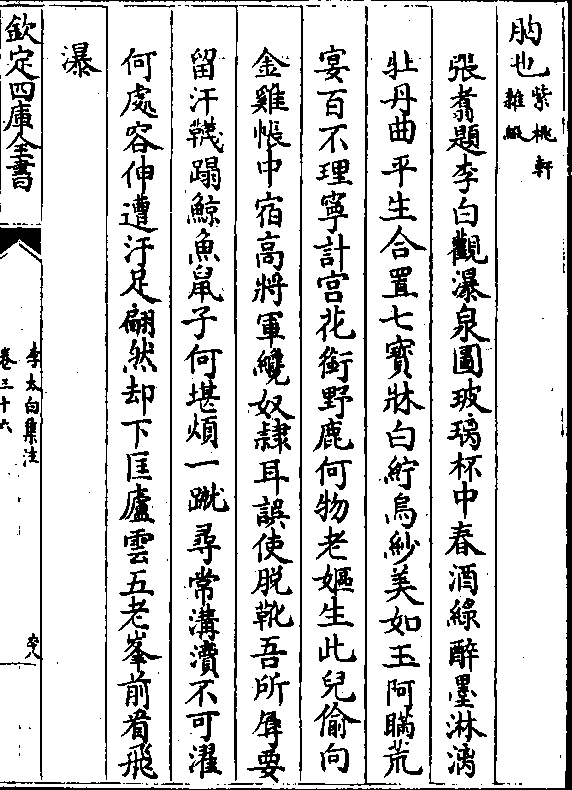 肭也紫桃軒
雜綴
張翥題李白觀瀑泉圖玻璃杯中春酒綠醉墨淋漓
牡丹曲平生合置七寳牀白紵烏紗美如玉阿瞞荒
宴百不理寧計宫花銜野鹿何物老嫗生此兒偷向
金雞帳中宿髙將軍纔奴隸耳誤使脱靴吾所辱要
留汗韈蹋鯨魚鼠子何堪煩一蹴尋常溝瀆不可濯
何處容伸遭汙足翩然却下匡廬雲五老峯前看飛
瀑
欽定四庫全書
李太白集注
卷三十六